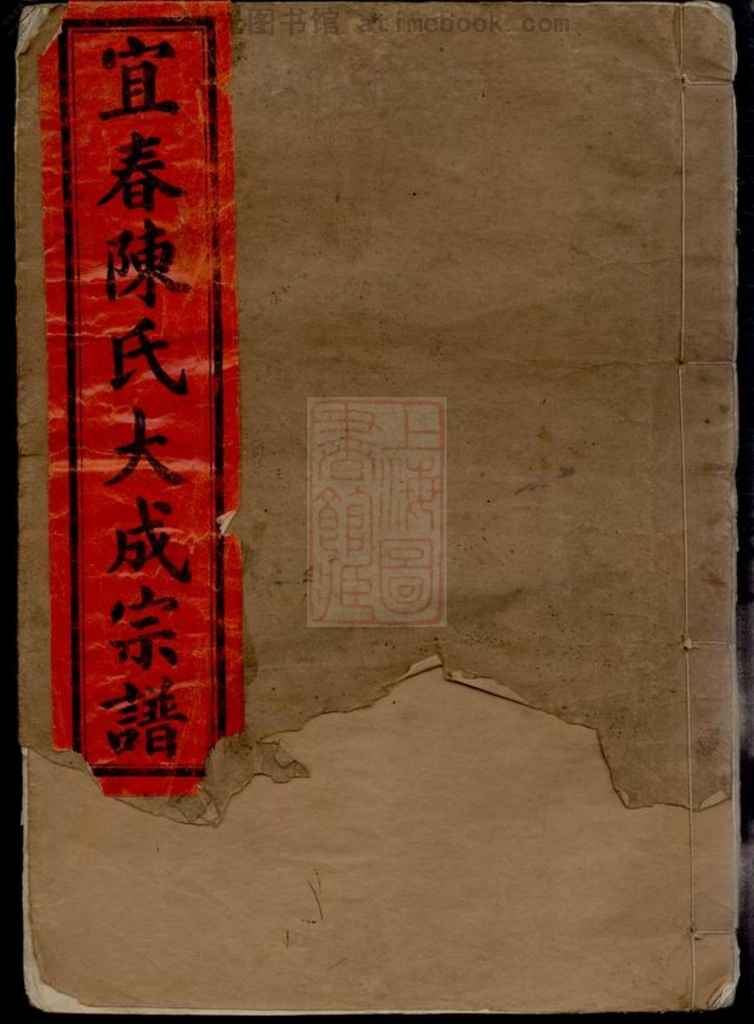 图书馆 atimebook.com
宜春陳氏大成宗譜
上海圖
書館藏